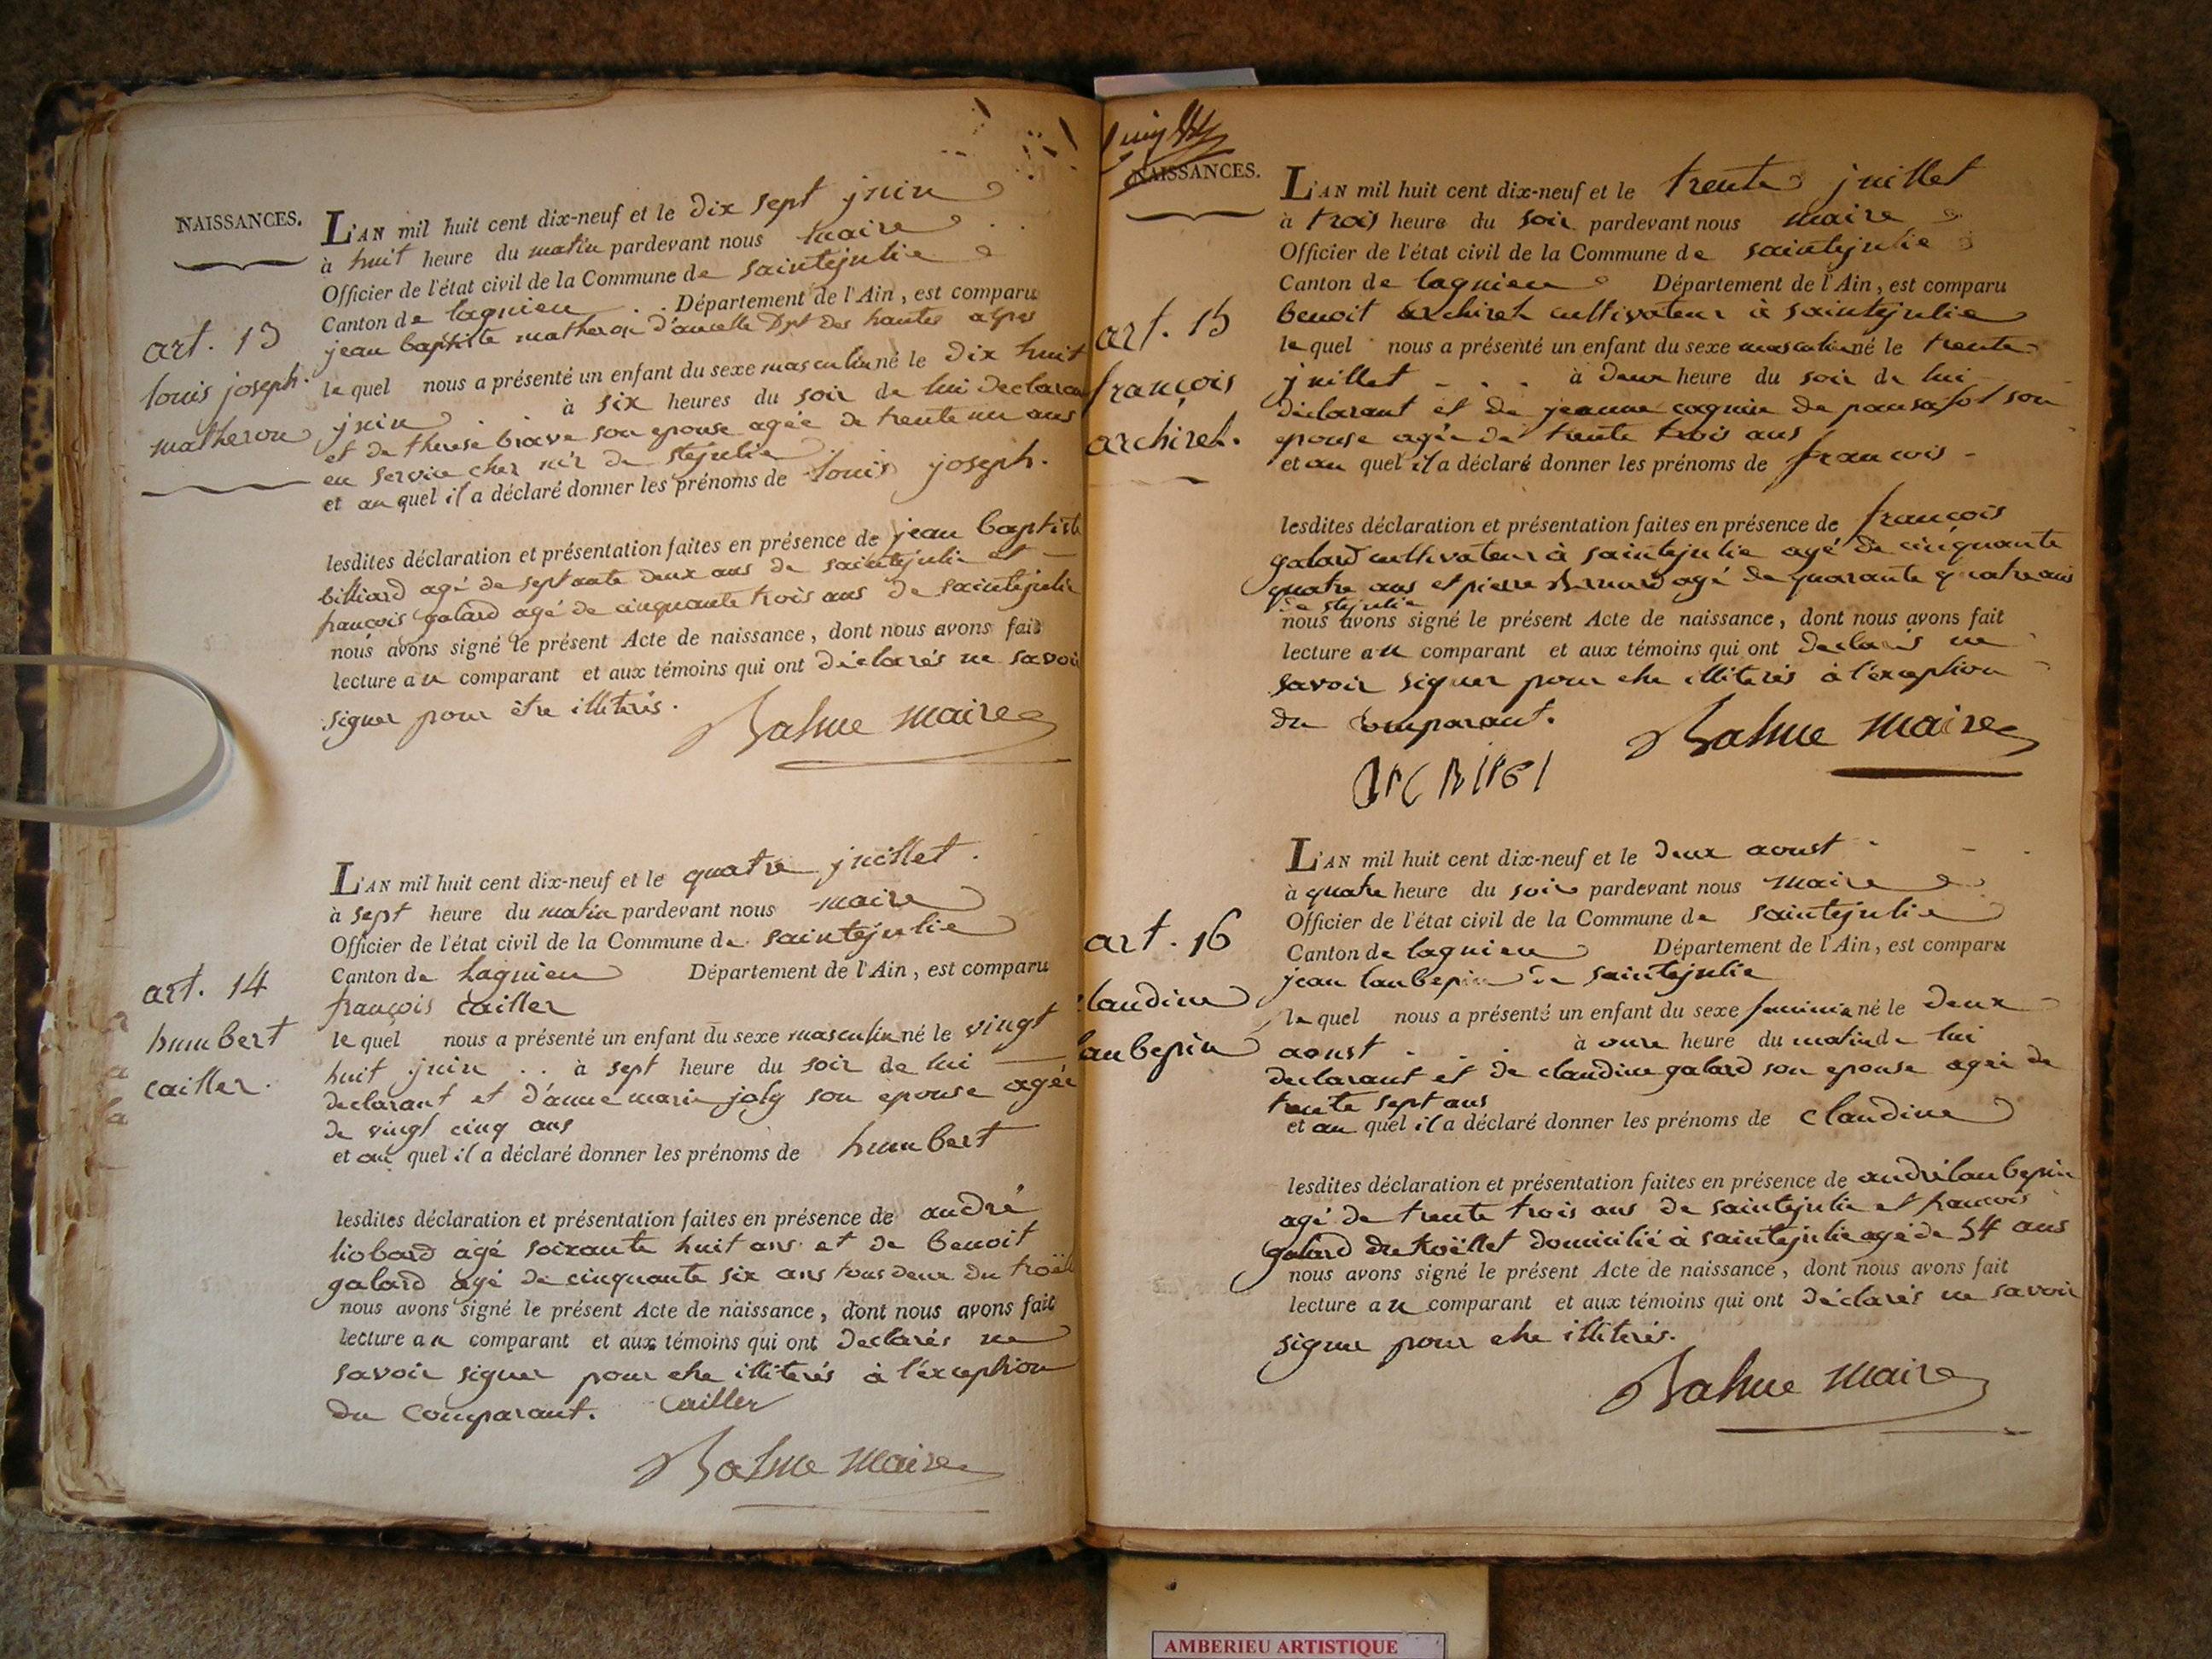 NAISSANCES.
L'AN mil huit cent dix-neuf et le dix sept juin
à huit heure du matin pardevant nous maire
Officier de l'état civil de la Commune de saintejulie
Canton de lagnieu . . Département de l'Ain, est comparu
jean baptiste matheron d'ancelle Dpt des hautes alpes
le quel nous a présenté un enfant du sexe masculin né le dix huit
juin . . à six heures du soir de lui declarant
et de therese brave son epouse agée de trente un ans
en service chez de stejulie
et au quel il a déclaré donner les prénoms de louis joseph.
art. 13
louis joseph.
matheron
lesdites déclaration et présentation faites en présence de jean baptiste
billiard agé de septante deux ans de saintejulie et
françois galard agé de cinquante trois ans de saintejulie
nous avons signé le présent Acte de naissance, dont nous avons fait
lecture au comparant et aux témoins qui ont déclarés ne savoir
signer pour être illiterés.
maire
L'AN mil huit cent dix-neuf et le quatre juillet.
à sept heure du matin pardevant nous maire
Officier de l'état civil de la Commune de saintejulie
Canton de Lagnieu Département de l'Ain, est comparu
françois cailler
le quel nous a présenté un enfant du sexe masculin né le vingt
huit juin . . à sept heure du soir de lui
declarant et d'anne marie joly son epouse agée
de vingt cinq ans
et au quel il a déclaré donner les prénoms de humbert
art. 14
humbert
cailler.
lesdites déclaration et présentation faites en présence de andré
liobard agé soixante huit ans et de benoit
galard agé de cinquante six ans tous deux du troëll
nous avons signé le présent Acte de naissance, dont nous avons fait
lecture au comparant et aux témoins qui ont declarés ne
savoir signer pour etre illiterés à l'exception
du comparant. Cailler
maire
NAISSANCES.
L'AN mil huit cent dix-neuf et le trente juillet
à trois heure du soir pardevant nous maire
Officier de l'état civil de la Commune de saintejulie
Canton de lagnieu Département de l'Ain, est comparu
benoit archiret cultivateur à saintejulie
le quel nous a présenté un enfant du sexe masculin né le trente
juillet - . . à deux heure du soir de lui
déclarant et de jeanne cognin de pansafol son
epouse agée de trente trois ans
et au quel il a déclaré donner les prénoms de francois -
art. 15
françois
archiret.
lesdites déclaration et présentation faites en présence de françois
galard cultivateur à saintejulie agé de cinquante
quatre ans et pierre agé de quarante quatre ans
de stejulie
nous avons signé le présent Acte de naissance, dont nous avons fait
lecture au comparant et aux témoins qui ont declarés ne
savoir signer pour etre illiterés à l'exception
du comparant.
maire
L'AN mil huit cent dix-neuf et le deux aoust
à quatre heure du soir pardevant nous maire
Officier de l'état civil de la Commune de saintejulie
Canton de lagnieu Département de l'Ain, est comparu
jean laubepin de saintejulie
le quel nous a présenté un enfant du sexe feminin né le deux
aoust . . à onze heure du matin de lui
declarant et de claudine galard son epouse agée de
trente sept ans
et au quel il a déclaré donner les prénoms de claudine
art. 16
claudine
laubepin
lesdites déclaration et présentation faites en présence de andré laubepin
agé de trente trois ans de saintejulie et francois
galard du troëllet domicilié à saintejulie agé de 54 ans
nous avons signé le présent Acte de naissance, dont nous avons fait
lecture au comparant et aux témoins qui ont déclarés ne savoir
signer pour etre illiterés.
maire
AMBERIEU ARTISTIQUE